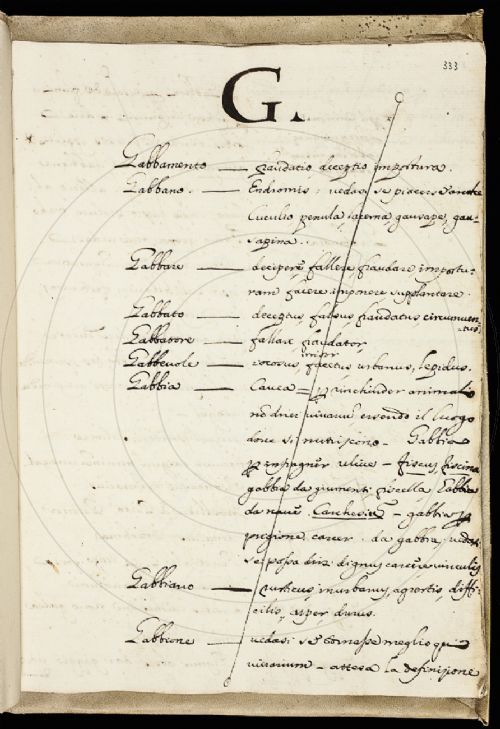 333
G.
Gabbamento — fraudatio deceptio impostura.
Gabbano. — Endromis: vedasi se piacesse
Cuculio penula, lacerna, gausape, gau-
sapina.
Gabbare — decipere, fallere, fraudare impostu-
ram facere imponere, supplantare.
Gabbato — deceptus, falsus fraudatus circumven-
tus.
Gabbatore — fallax, fraudator,
impostor
Gabbevole — iocosus, facetus urbanus, lepidus.
Gabbia — Cavea = animali
vivavu essendo il luogo
dove si nutriscono - Gabbia
- fiscus, fiscina
gabbia da giumenti, fiscella, Gabbia
da nave. Carchesiu - gabbia p
prigione carcer. da gabbia, vedasi
se possa dire dignus carcere vinculis
Gabbiano — rusticus, inurbanus, agrestis, diffi-
cilis, asper, durus.
Gabbione — vedasi se tornasse meglio
vivarium - attesa la definizione